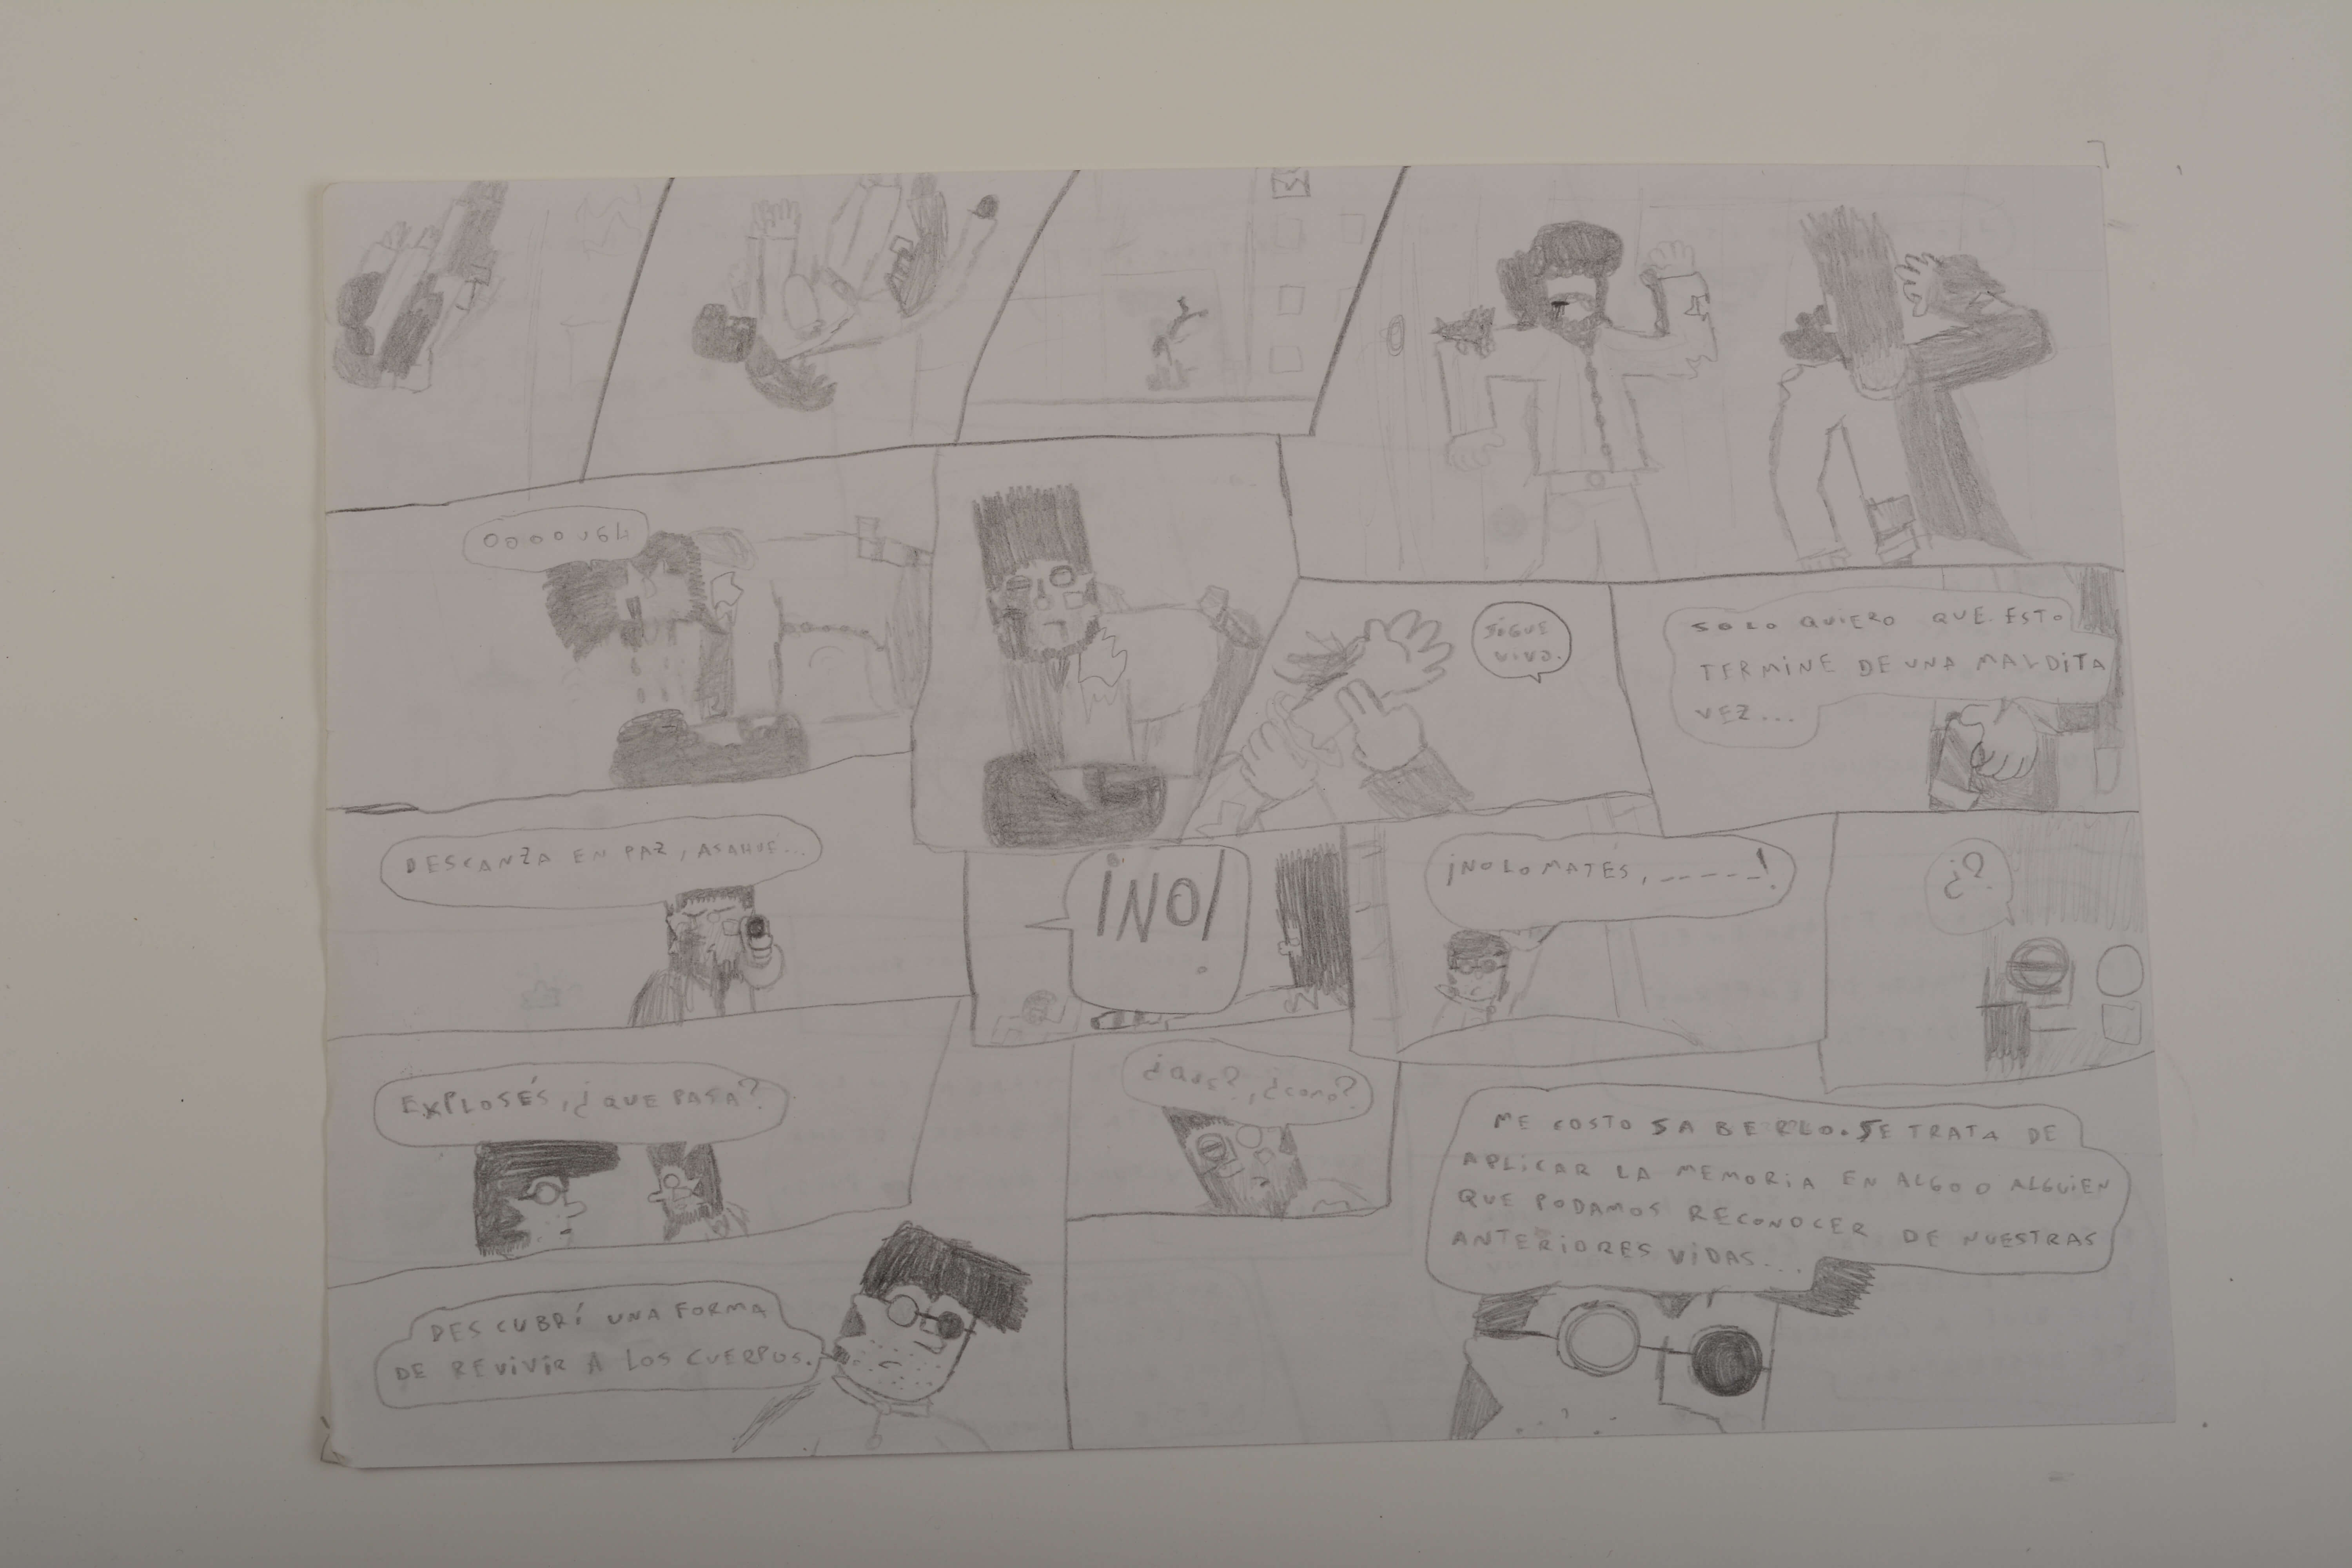 OOOOUGH
SIGUE
VIVO.
SOLO QUIERO QUE ESTO
TERMINE DE UNA MALDITA
VEZ...
DESCANZA EN PAZ, ASAHUE...
¡NO!
¡NO LO MATÉS, -----!
¿?
EXPLOSÉS, ¿QUE PASA?
¿QUE?, ¿COMO?
DESCUBRÍ UNA FORMA
DE REVIVIR A LOS CUERPOS.
ME COSTO SABERLO. SE TRATA DE
APLICAR LA MEMORIA EN ALGO O ALGUIEN
QUE PODAMOS RECONOCER DE NUESTRAS
ANTERIORES VIDAS...